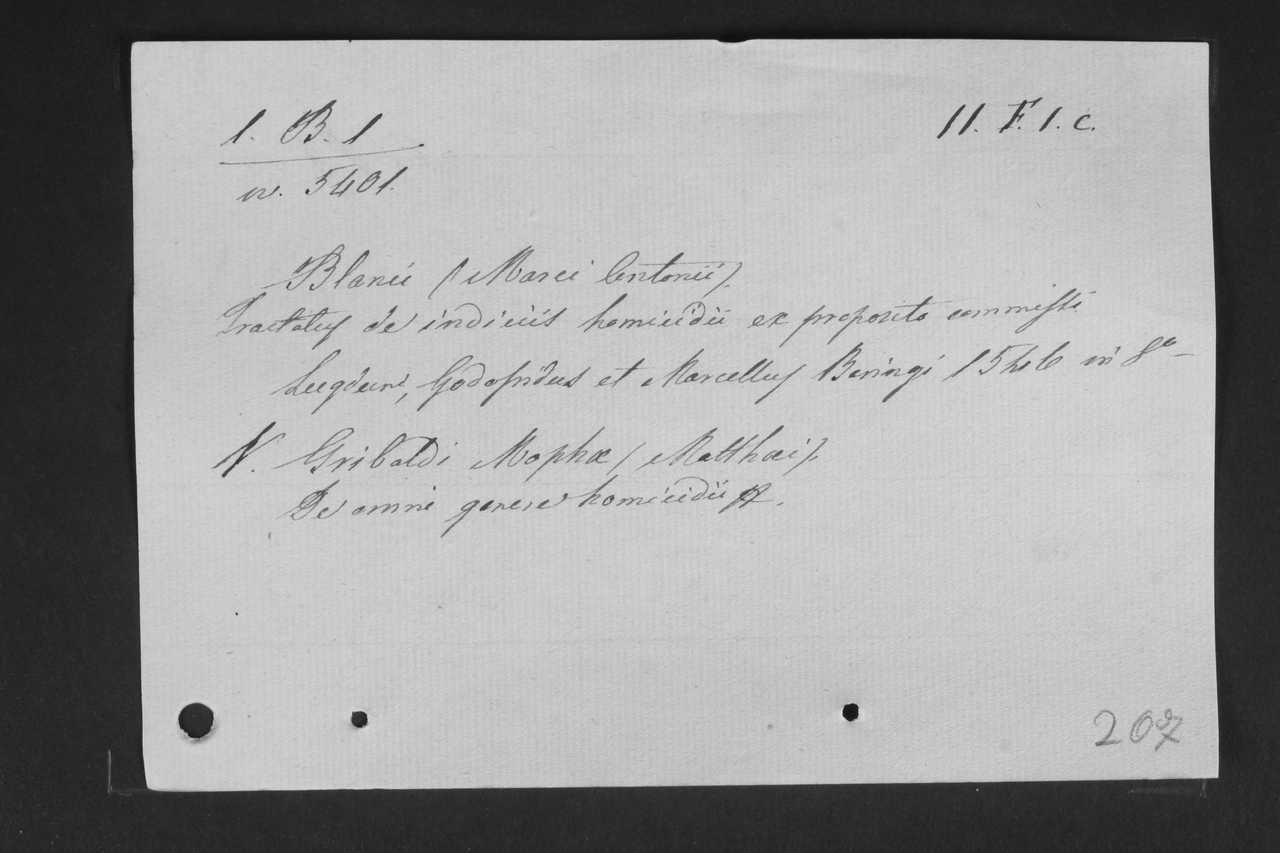 1. B. 1
11. F. 1. c.
nr. 5401.
Blanci (Marci Antonii)
Tractatus de indiciis homicidii ex proposito commissi
Lugduni, Godofridus et Marcellus Beringi 1546 in 8°
N. Gribaldi Mophæ (Matthæi).
De omni genere homicidii
207